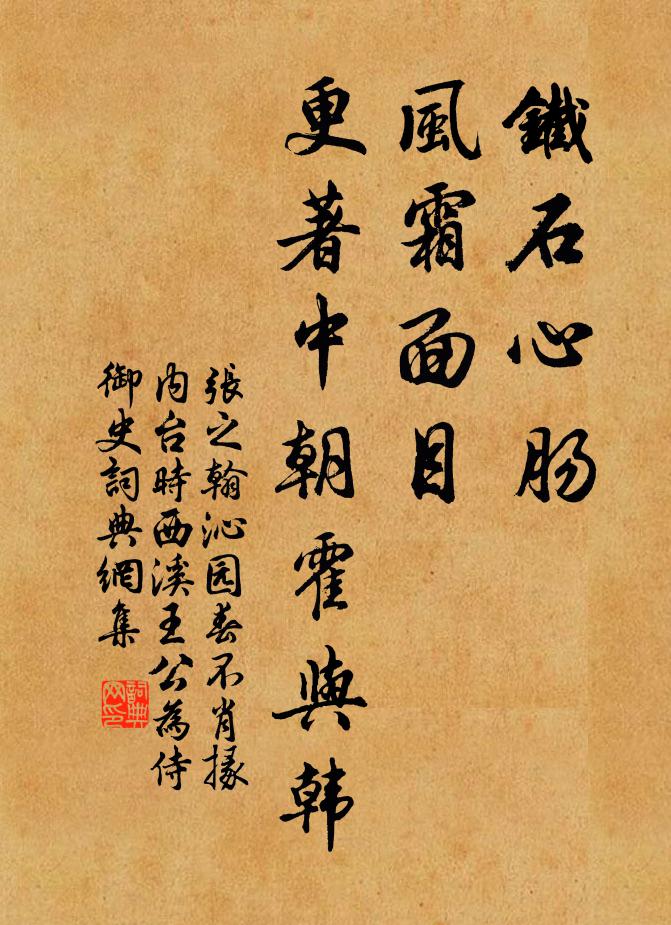 鐵石心肠
風霜面目
更著中朝霍與韩
張之翰沁园春不肖掾
内台時西溪王公為侍
御史詞典網集
詞典
网印